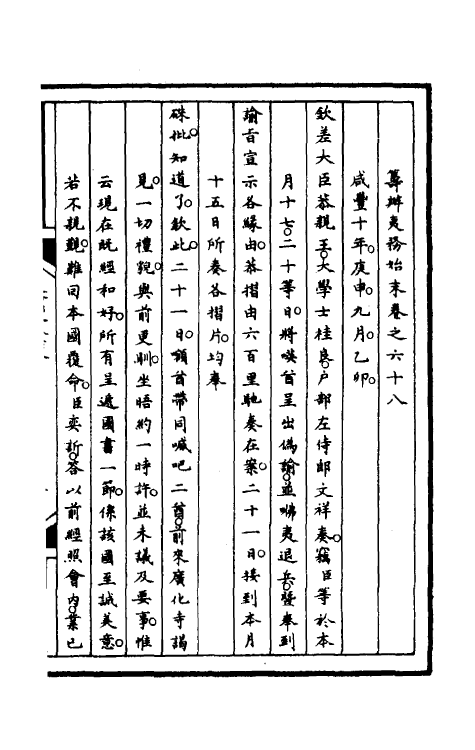 籌辦夷務始末卷之六十八
咸豐十年。庚申。九月。乙卯。
欽差大臣恭親王。大學士桂良。戶部左侍郎文祥奏。竊臣等於本
月十七。二十等日。將𠸄酋呈出偽諭。並㗶夷退兵。暨奉到
諭旨宣示各緣由。恭摺由六百里馳奏在案。二十一日。接到本月
十五日所奏各摺片。均奉
硃批。知道了。欽此。二十一日。額酋帶同喊吧二酋。前來廣化寺謁
見。一切禮貌。與前更馴。坐晤約一時許。並未議及要事。惟
云現在既經和好。所有呈遞國書一節。係該國至誠美意。
若不親覿。難回本國覆命。臣奕訢。答以前經照會內。業已